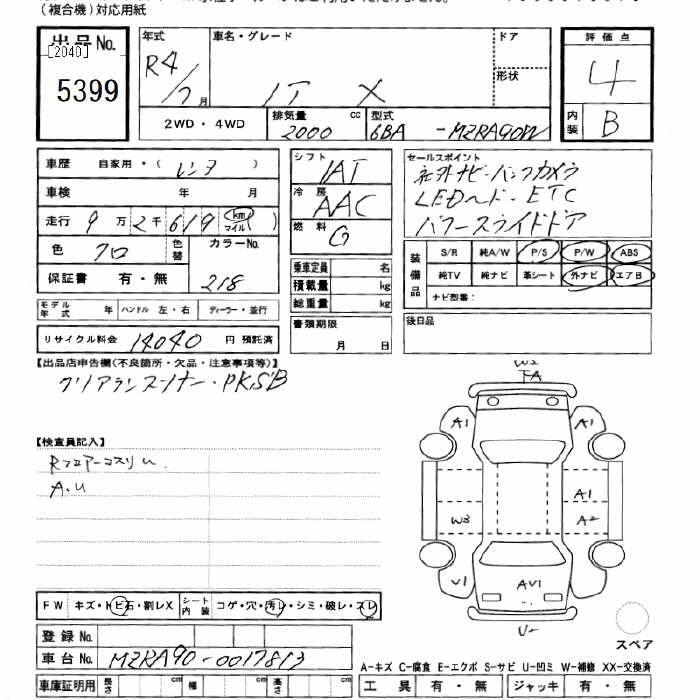 (複合機)対応用紙
出品No.
[2040]
5399
年式
R4/7月
車名・グレード
ドア
形状
X
2WD・4WD
排気量 cc
2000
型式
6BA -MZRA90W
評価点
4
内装
B
車歴 自家用・(レンタ)
車検 年 月
走行 9万2千619 km マイル( )
色 クロ 色替 カラーNo. 218
保証書 有・無
モデル年式 年 ハンドル 左・右 ディーラー・並行
リサイクル料金 14040 円 預託済
シフト
IAT
冷房
AAC
燃料
G
乗車定員 名
積載量 kg
総重量 kg
書類期限
月 日
セールスポイント
社外ナビ・バックカメラ
LEDヘッド・ETC
パワースライドドア
装備品
S/R 純A/W P/S P/W ABS
純TV 純ナビ 革シート 外ナビ エアB
ナビ型番:
後日品
【出品店申告欄(不良箇所・欠品・注意事項等)】
クリアランスソナー・PKSB
【検査員記入】
RフロアーコスリU
A.U
W2
FA
A1 A1
A1
W3 A2
U1 AU1 A1
U2
FW キズ・トビ石・割レX シート内装 コゲ・穴・汚レ・シミ・破レ・スレ
登録No.
車台No. MZRA90-0017813
車庫証明用 長さ cm 幅 cm 高さ cm
スペア
A-キズ C-腐食 E-エクボ S-サビ U-凹ミ W-補修 XX-交換済
工具 有・無 ジャッキ 有・無